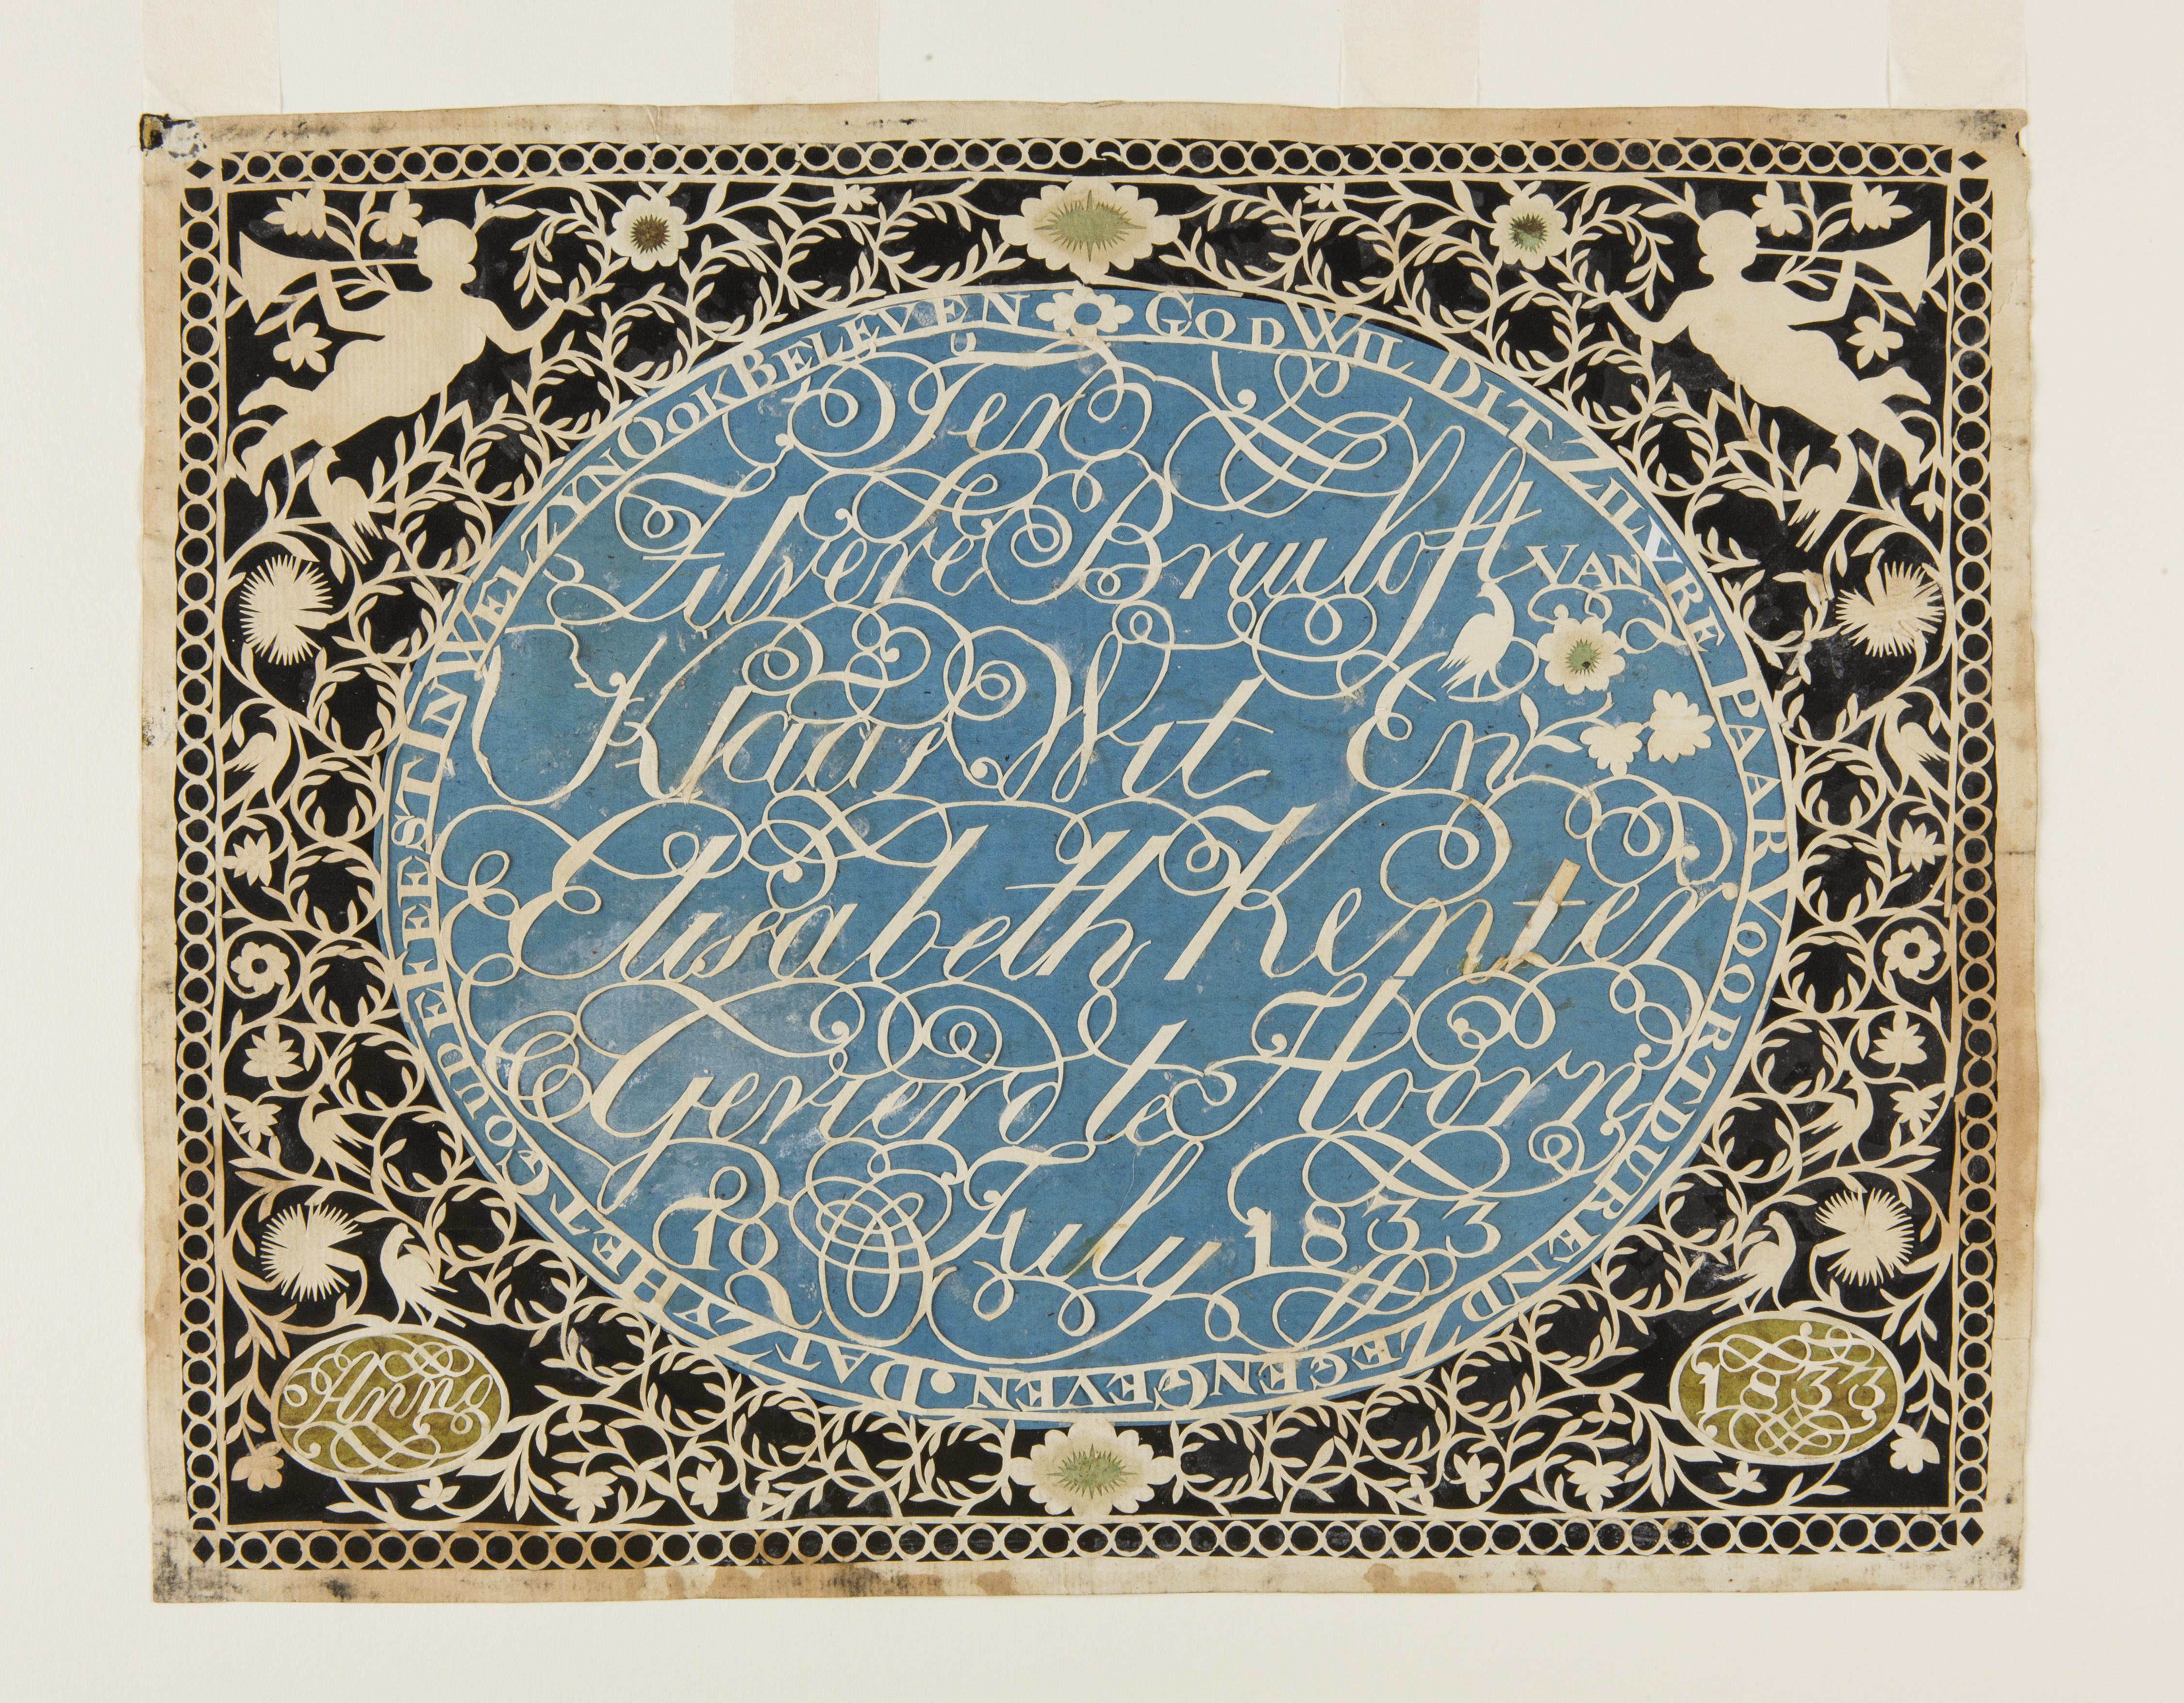 GOD WIL DIT ZILVRE PAAR VOORTDUREND ZEGEN GEVEN. DAT ZY HET GOUDE FEEST IN WELZYN OOK BELEVEN
Ter
Zilvere Bruiloft VAN
Klaas Wit En
Elisabeth Kenter
Gevierd te Hoorn
18 July 1833
Anno
1833